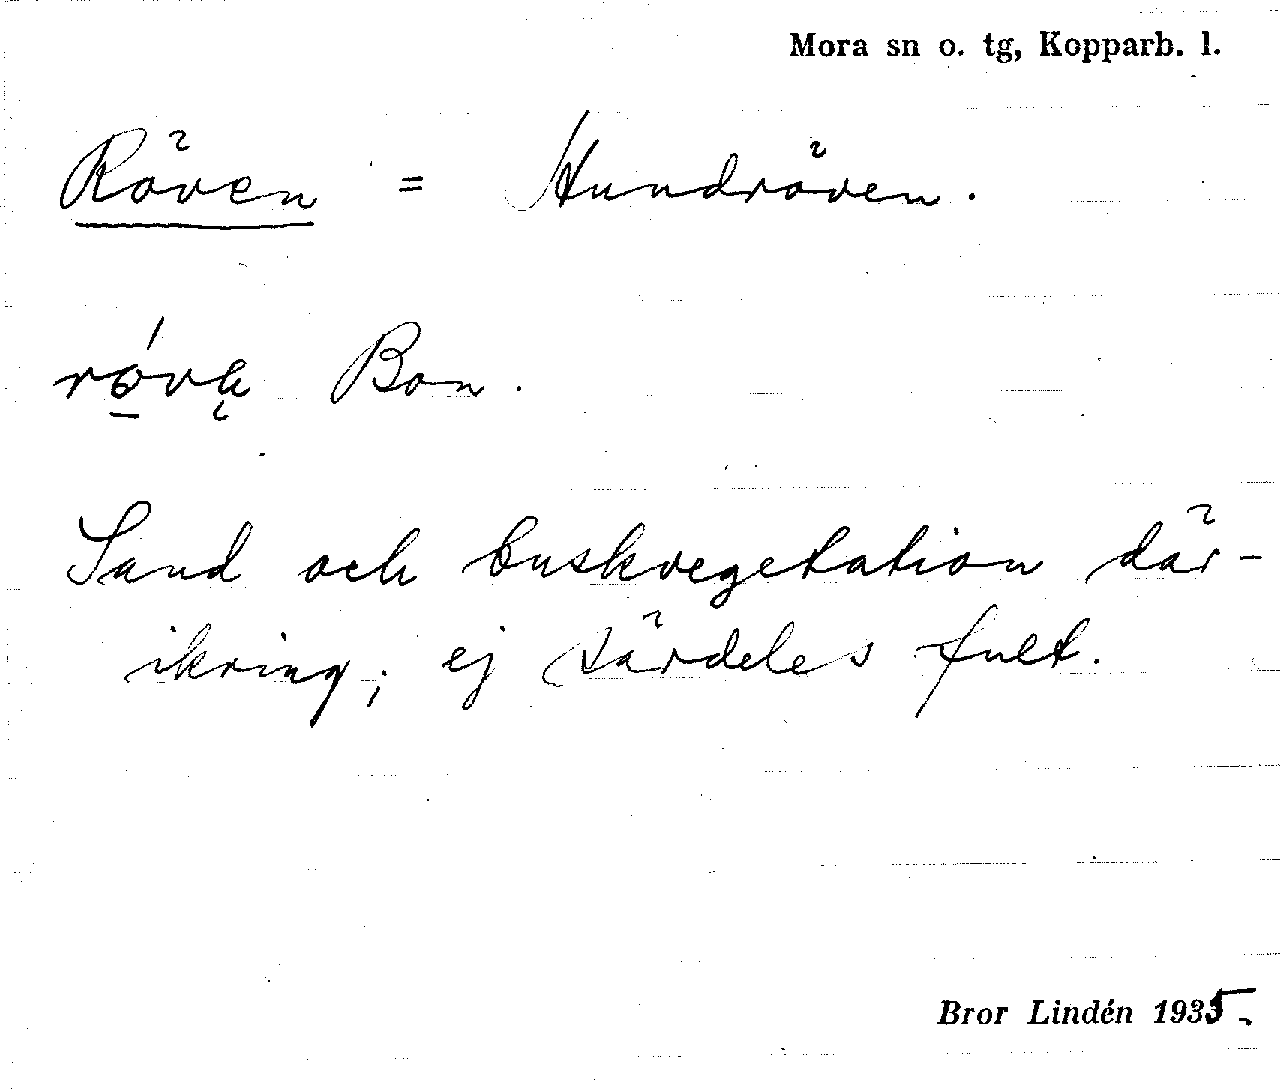 Mora sn o. tg, Kopparb. l.
Röven = Hundröven.
Bon.
Sand och buskvegetation där-
ikring; ej särdeles fult.
Bror Lindén 1935.